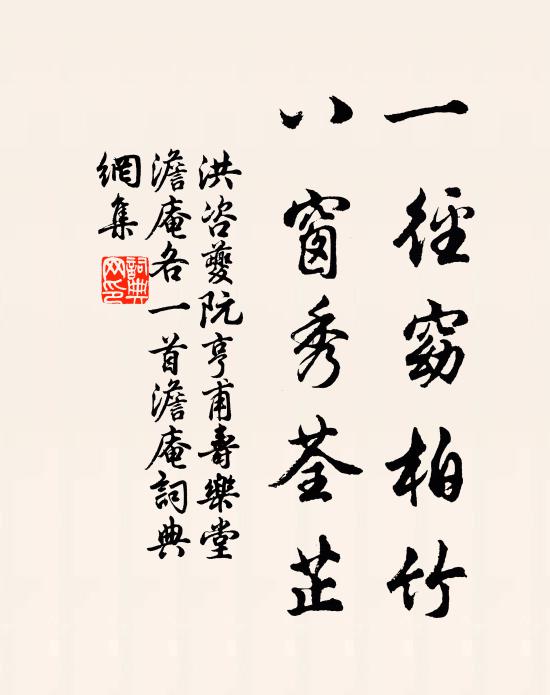 一徑窈柏竹
八窗秀荃芷
洪咨夔阮亨甫壽樂堂
澹庵各一首澹庵詞典
網集
詞典
网印